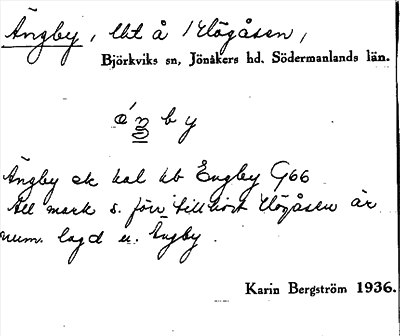 Ängby, lht å Högåsen,
Björkviks sn, Jönåkers hd. Södermanlands län.
ngby
Ängby ek hal hb Ängby G66
All mark s. förr tillhört Högåsen är
num. lagd u. Ängby.
Karin Bergström 1936.